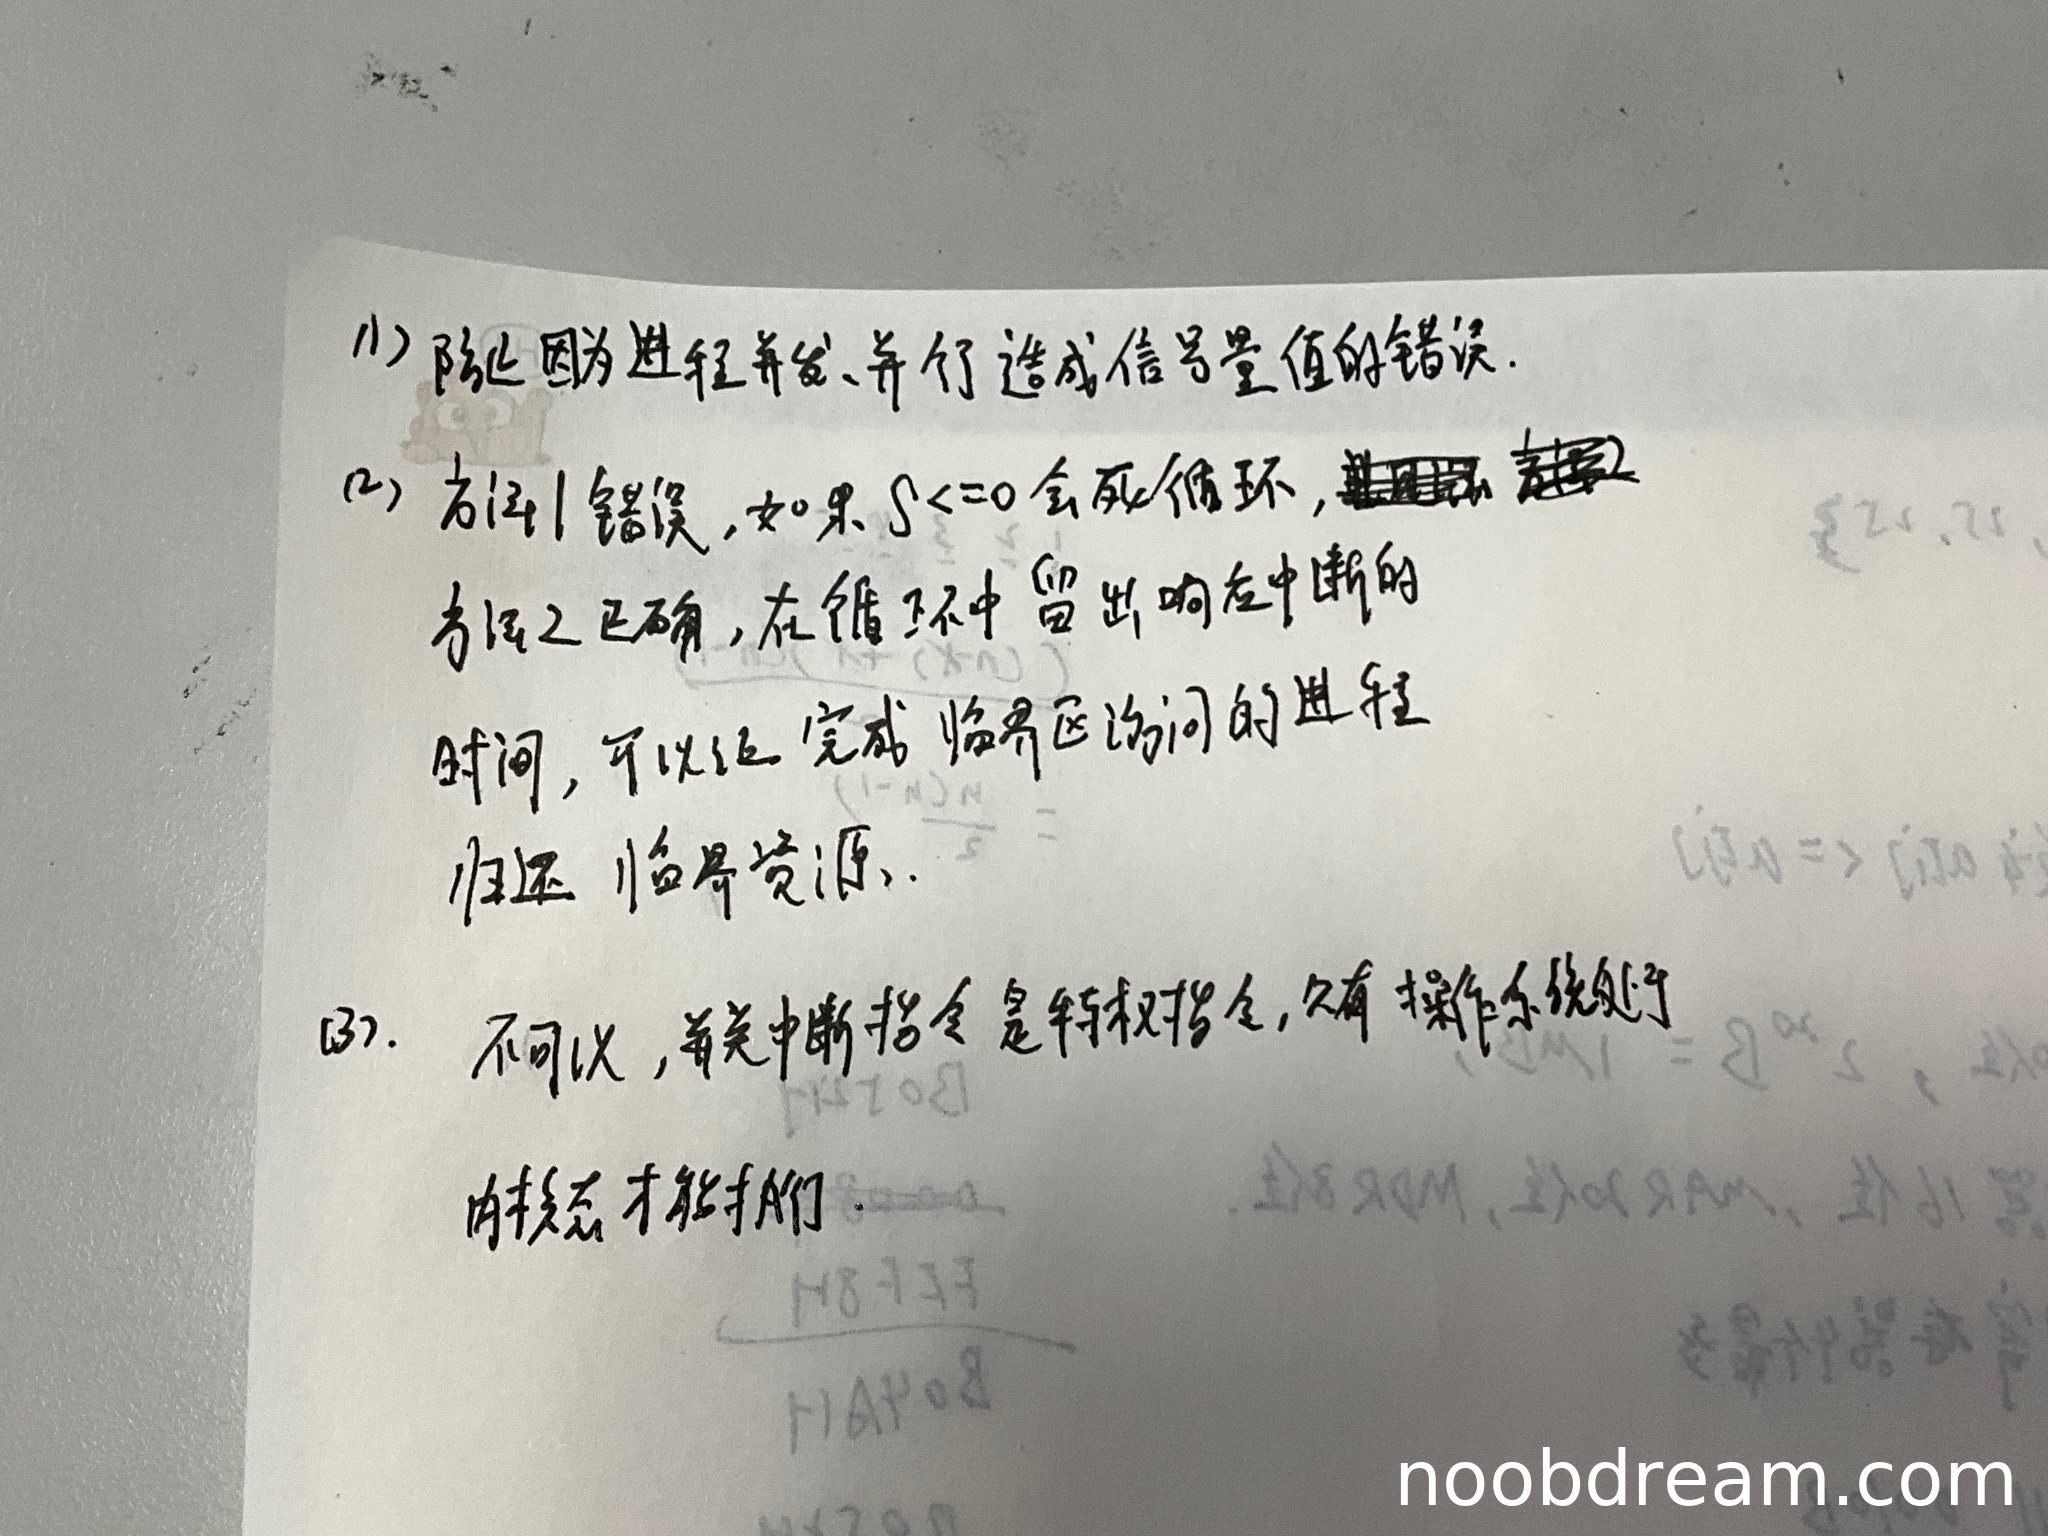 (1) 防止因为进程并发、并行造成信号量值的错误.
(2) 方法1错误,如果S<=0会死循环,
方法2正确,在循环中留出响应中断的
时间,可以让完成临界区访问的进程
归还临界资源.
(3). 不可以,开关中断指令是特权指令,只有操作系统处于
内核态才能执行.
noobdream.com